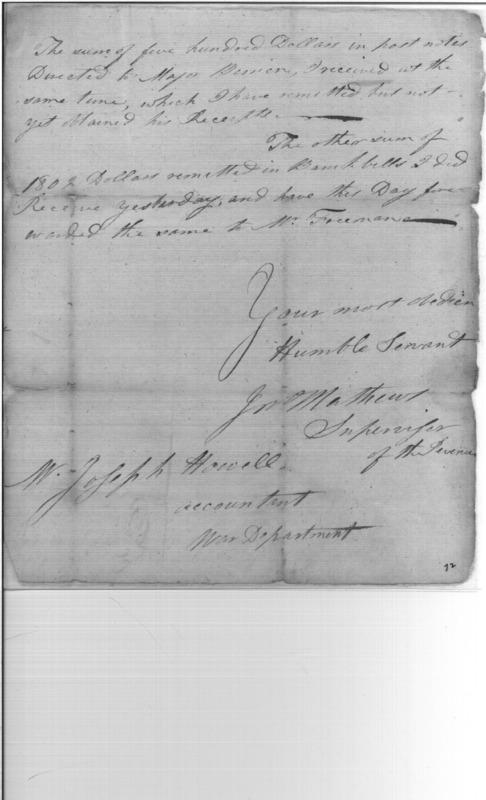 The sum of five hundred Dollars in post notes
Directed to Major Bession, I received at the
same time, which I have remitted but not
yet obtained his Receipts.
The other sum of
1802 Dollars remitted in Bank bills I did
Receive yesterday, and have this Day for
warded the same to Mr. Freeman
Your most obedien
Humble Servant
Jno Mathews
Supervisor
of the Revenue
Mr. Joseph Howell
accountent
War Department
72